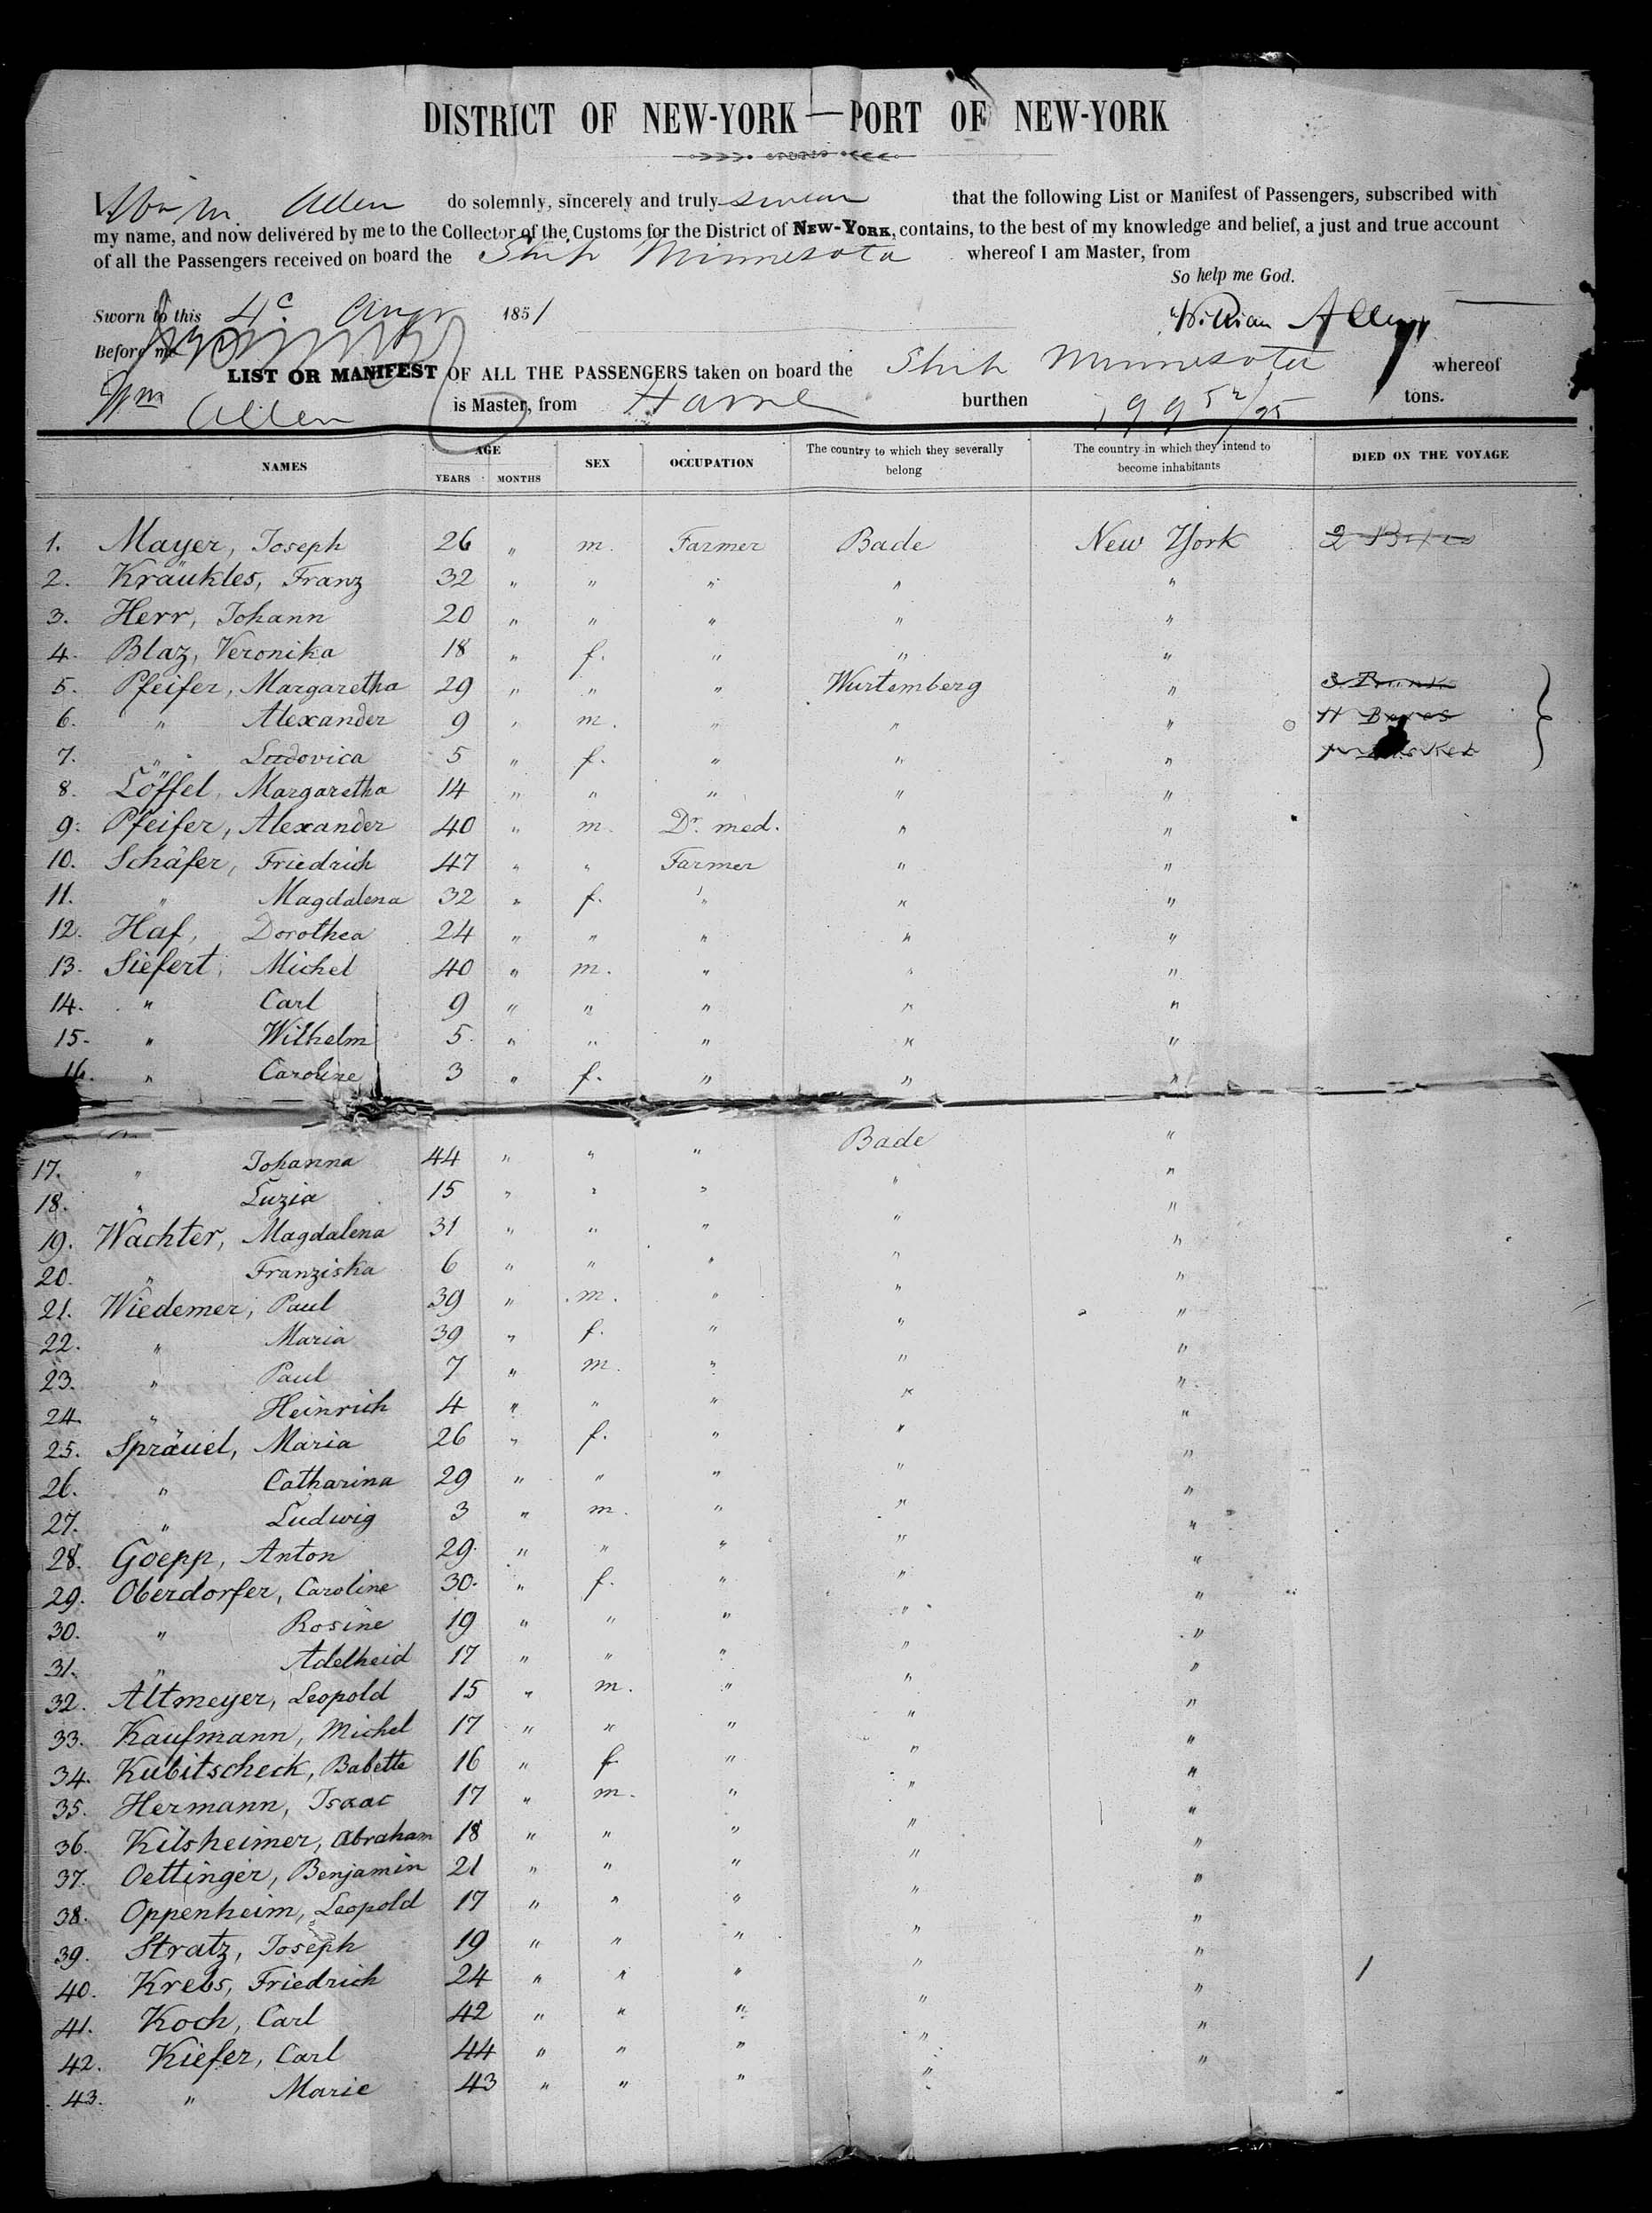 DISTRICT OF NEW-YORK—PORT OF NEW-YORK
I, Wm Allen do solemnly, sincerely and truly swear that the following List or Manifest of Passengers, subscribed with
my name, and now delivered by me to the Collector of the Customs for the District of NEW-YORK, contains, to the best of my knowledge and belief, a just and true account
of all the Passengers received on board the Ship Minnesota whereof I am Master, from
So help me God.
Sworn to this 4 Augt 1851
William Allen
Before me
LIST OR MANIFEST OF ALL THE PASSENGERS taken on board the Ship Minnesota whereof
Wm Allen is Master, from Havre burthen 799 52/95 tons.
NAMES AGE YEARS MONTHS SEX OCCUPATION The country to which they severally belong The country in which they intend to become inhabitants DIED ON THE VOYAGE
1. Mayer, Joseph 26 " m. Farmer Bade New York 2 Boxes
2. Kräukles, Franz 32 " " " " "
3. Herr, Johann 20 " " " " "
4. Blaz, Veronika 18 " f. " " "
5. Pfeifer, Margaretha 29 " " " Wurtemberg "
6. " Alexander 9 " m. " " " 11 Boxes
7. " Ludovica 5 " f. " " " Basket
8. Löffel, Margaretha 14 " " " " "
9. Pfeifer, Alexander 40 " m. Dr. med. " "
10. Schäfer, Friedrich 47 " " Farmer " "
11. " Magdalena 32 " f. " " "
12. Haf, Dorothea 24 " " " " "
13. Siefert, Michel 40 " m. " " "
14. " Carl 9 " " " " "
15. " Wilhelm 5 " " " " "
16. " Caroline 3 " f. " " "
17. " Johanna 44 " " " Bade "
18. " Luzia 15 " " " " "
19. Wachter, Magdalena 31 " " " " "
20. " Franziska 6 " " " " "
21. Wiedemer, Paul 39 " m. " " "
22. " Maria 39 " f. " " "
23. " Paul 7 " m. " " "
24. " Heinrich 4 " " " " "
25. Spräuel, Maria 26 " f. " " "
26. " Catharina 29 " " " " "
27. " Ludwig 3 " m. " " "
28. Goepp, Anton 29. " " " " "
29. Oberdorfer, Caroline 30. " f. " " "
30. " Rosine 19 " " " " "
31. " Adelheid 17 " " " " "
32. Altmeyer, Leopold 15 " m. " " "
33. Kaufmann, Michel 17 " " " " "
34. Kubitscheck, Babette 16 " f " " "
35. Hermann, Isaac 17 " m. " " "
36. Kilsheimer, Abraham 18 " " " " "
37. Oettinger, Benjamin 21 " " " " "
38. Oppenheim, Leopold 17 " " " " "
39. Stratz, Joseph 19 " " " " "
40. Krebs, Friedrich 24 " " " " "
41. Koch, Carl 42 " " " " "
42. Kiefer, Carl 44 " " " " "
43. " Marie 43 " " " "